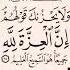 ولا يحزنك قولهم
إن العزة لله
جميعا هو السميع العليم